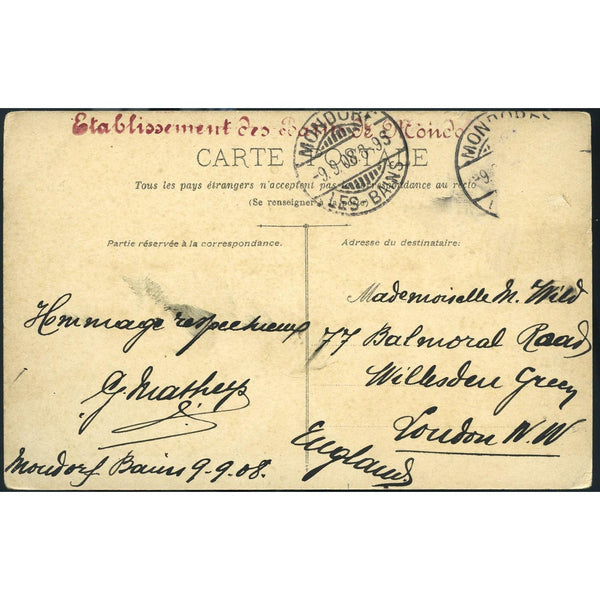 Etablissement des Bains de Mondo
CARTE POSTALE
Tous les pays étrangers n'acceptent pas la correspondance au recto
(Se renseigner à la poste)
Partie réservée à la correspondance.
Hommage respectueux
G. Matheys
Mondorf Bains 9-9-08.
Adresse du destinataire:
Mademoiselle M. Wild
77 Balmoral Road
Willesden Green
London N.W
England
MONDORF
9.9.08
LES-BAINS
MONDORF